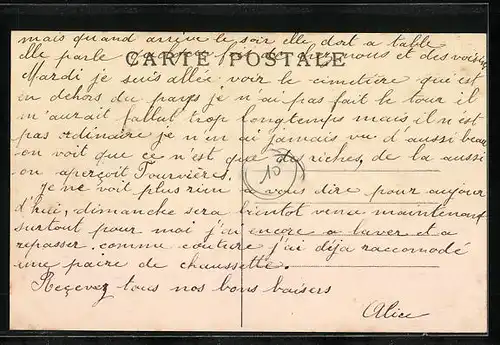 mais quand arrive le soir elle dort a table
elle parle de chez nous et des voisins
CARTE POSTALE
Mardi je suis allée voir le cimetière qui est
en dehors du pays je n'ai pas fait le tour il
m'aurait fallut trop longtemps mais il n'est
pas ordinaire je n'en ai jamais vu d'aussi beau
on voit que ce n'est que de riches, de la aussi
on aperçoit Fourvières.
10
je ne voit plus rien a vous dire pour aujour
d'hui, dimanche sera bientot venu maintenant
surtout pour moi j'ai encore a laver et a
repasser. comme couture j'ai déja raccomodé
une paire de chaussette.
Reçevez tous nos bons baisers
Alice